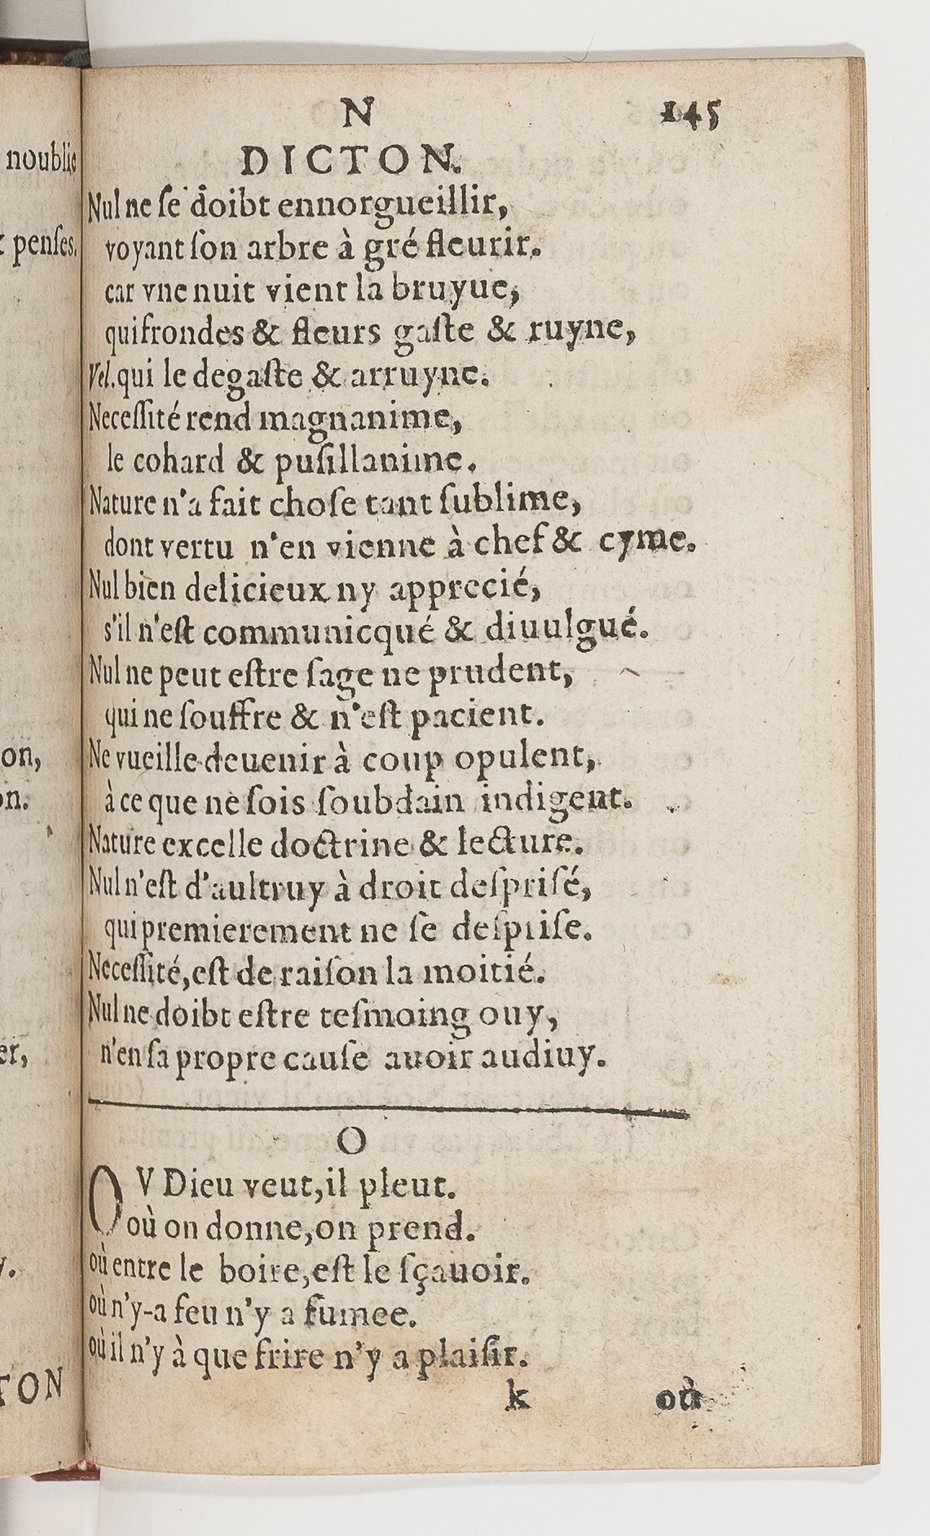 noublie
penſes.
on,
on.
er,
y.
TON
N 145
DICTON.
Nul ne ſe doibt ennorgueillir,
voyant ſon arbre à gré fleurir.
car vne nuit vient la bruyue,
qui frondes & fleurs gaſte & ruyne,
Vel. qui le degaſte & arruyne.
Neceſſité rend magnanime,
le cohard & puſillanime.
Nature n'a fait choſe tant ſublime,
dont vertu n'en vienne à chef & cyme.
Nul bien delicieux ny apprecié,
s'il n'eſt communicqué & diuulgué.
Nul ne peut eſtre ſage ne prudent,
qui ne ſouffre & n'eſt pacient.
Ne vueille deuenir à coup opulent,
à ce que ne ſois ſoubdain indigent.
Nature excelle doctrine & lecture.
Nul n'eſt d'aultruy à droit deſpriſé,
qui premierement ne ſe deſpriſe.
Neceſſité, eſt de raiſon la moitié.
Nul ne doibt eſtre teſmoing ouy,
n'en ſa propre cauſe auoir audiuy.
O
OV Dieu veut, il pleut.
où on donne, on prend.
où entre le boire, eſt le ſçauoir.
où n'y-a feu n'y a fumee.
où il n'y à que frire n'y a plaiſir.
k où